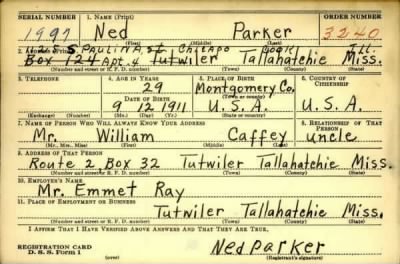 SERIAL NUMBER 1. NAME (Print) ORDER NUMBER
1997 Ned Parker 3240
(First) (Middle) (Last)
S. PAULINA, St. Chicago COOK Ill.
Box 124 Apt. 4 Tutwiler Tallahatchie Miss.
(Number and Street or R. F. D. number) (Town) (County) (State)
3. TELEPHONE 4. AGE IN YEARS 5. PLACE OF BIRTH 6. COUNTRY OF CITIZENSHIP
29 Montgomery Co.
DATE OF BIRTH (Town) (County)
9 12 1911 U.S.A. U.S.A.
(Exchange) (Number) (Mo.) (Day) (Yr.) (State or country)
7. NAME OF PERSON WHO WILL ALWAYS KNOW YOUR ADDRESS 8. RELATIONSHIP OF THAT PERSON
Mr. William Caffey uncle
(Mr., Mrs., Miss) (First) (Middle) (Last)
9. ADDRESS OF THAT PERSON
Route 2 Box 32 Tutwiler Tallahatchie Miss.
(Number and street or R. F. D. number) (Town) (County) (State)
10. EMPLOYER'S NAME
Mr. Emmet Ray
11. PLACE OF EMPLOYMENT OR BUSINESS
Tutwiler Tallahatchie Miss.
(Number and street or R. F. D. number) (Town) (County) (State)
I AFFIRM THAT I HAVE VERIFIED ABOVE ANSWERS AND THAT THEY ARE TRUE.
REGISTRATION CARD
D. S. S. Form 1 (over) Ned Parker
(Registrant's signature)